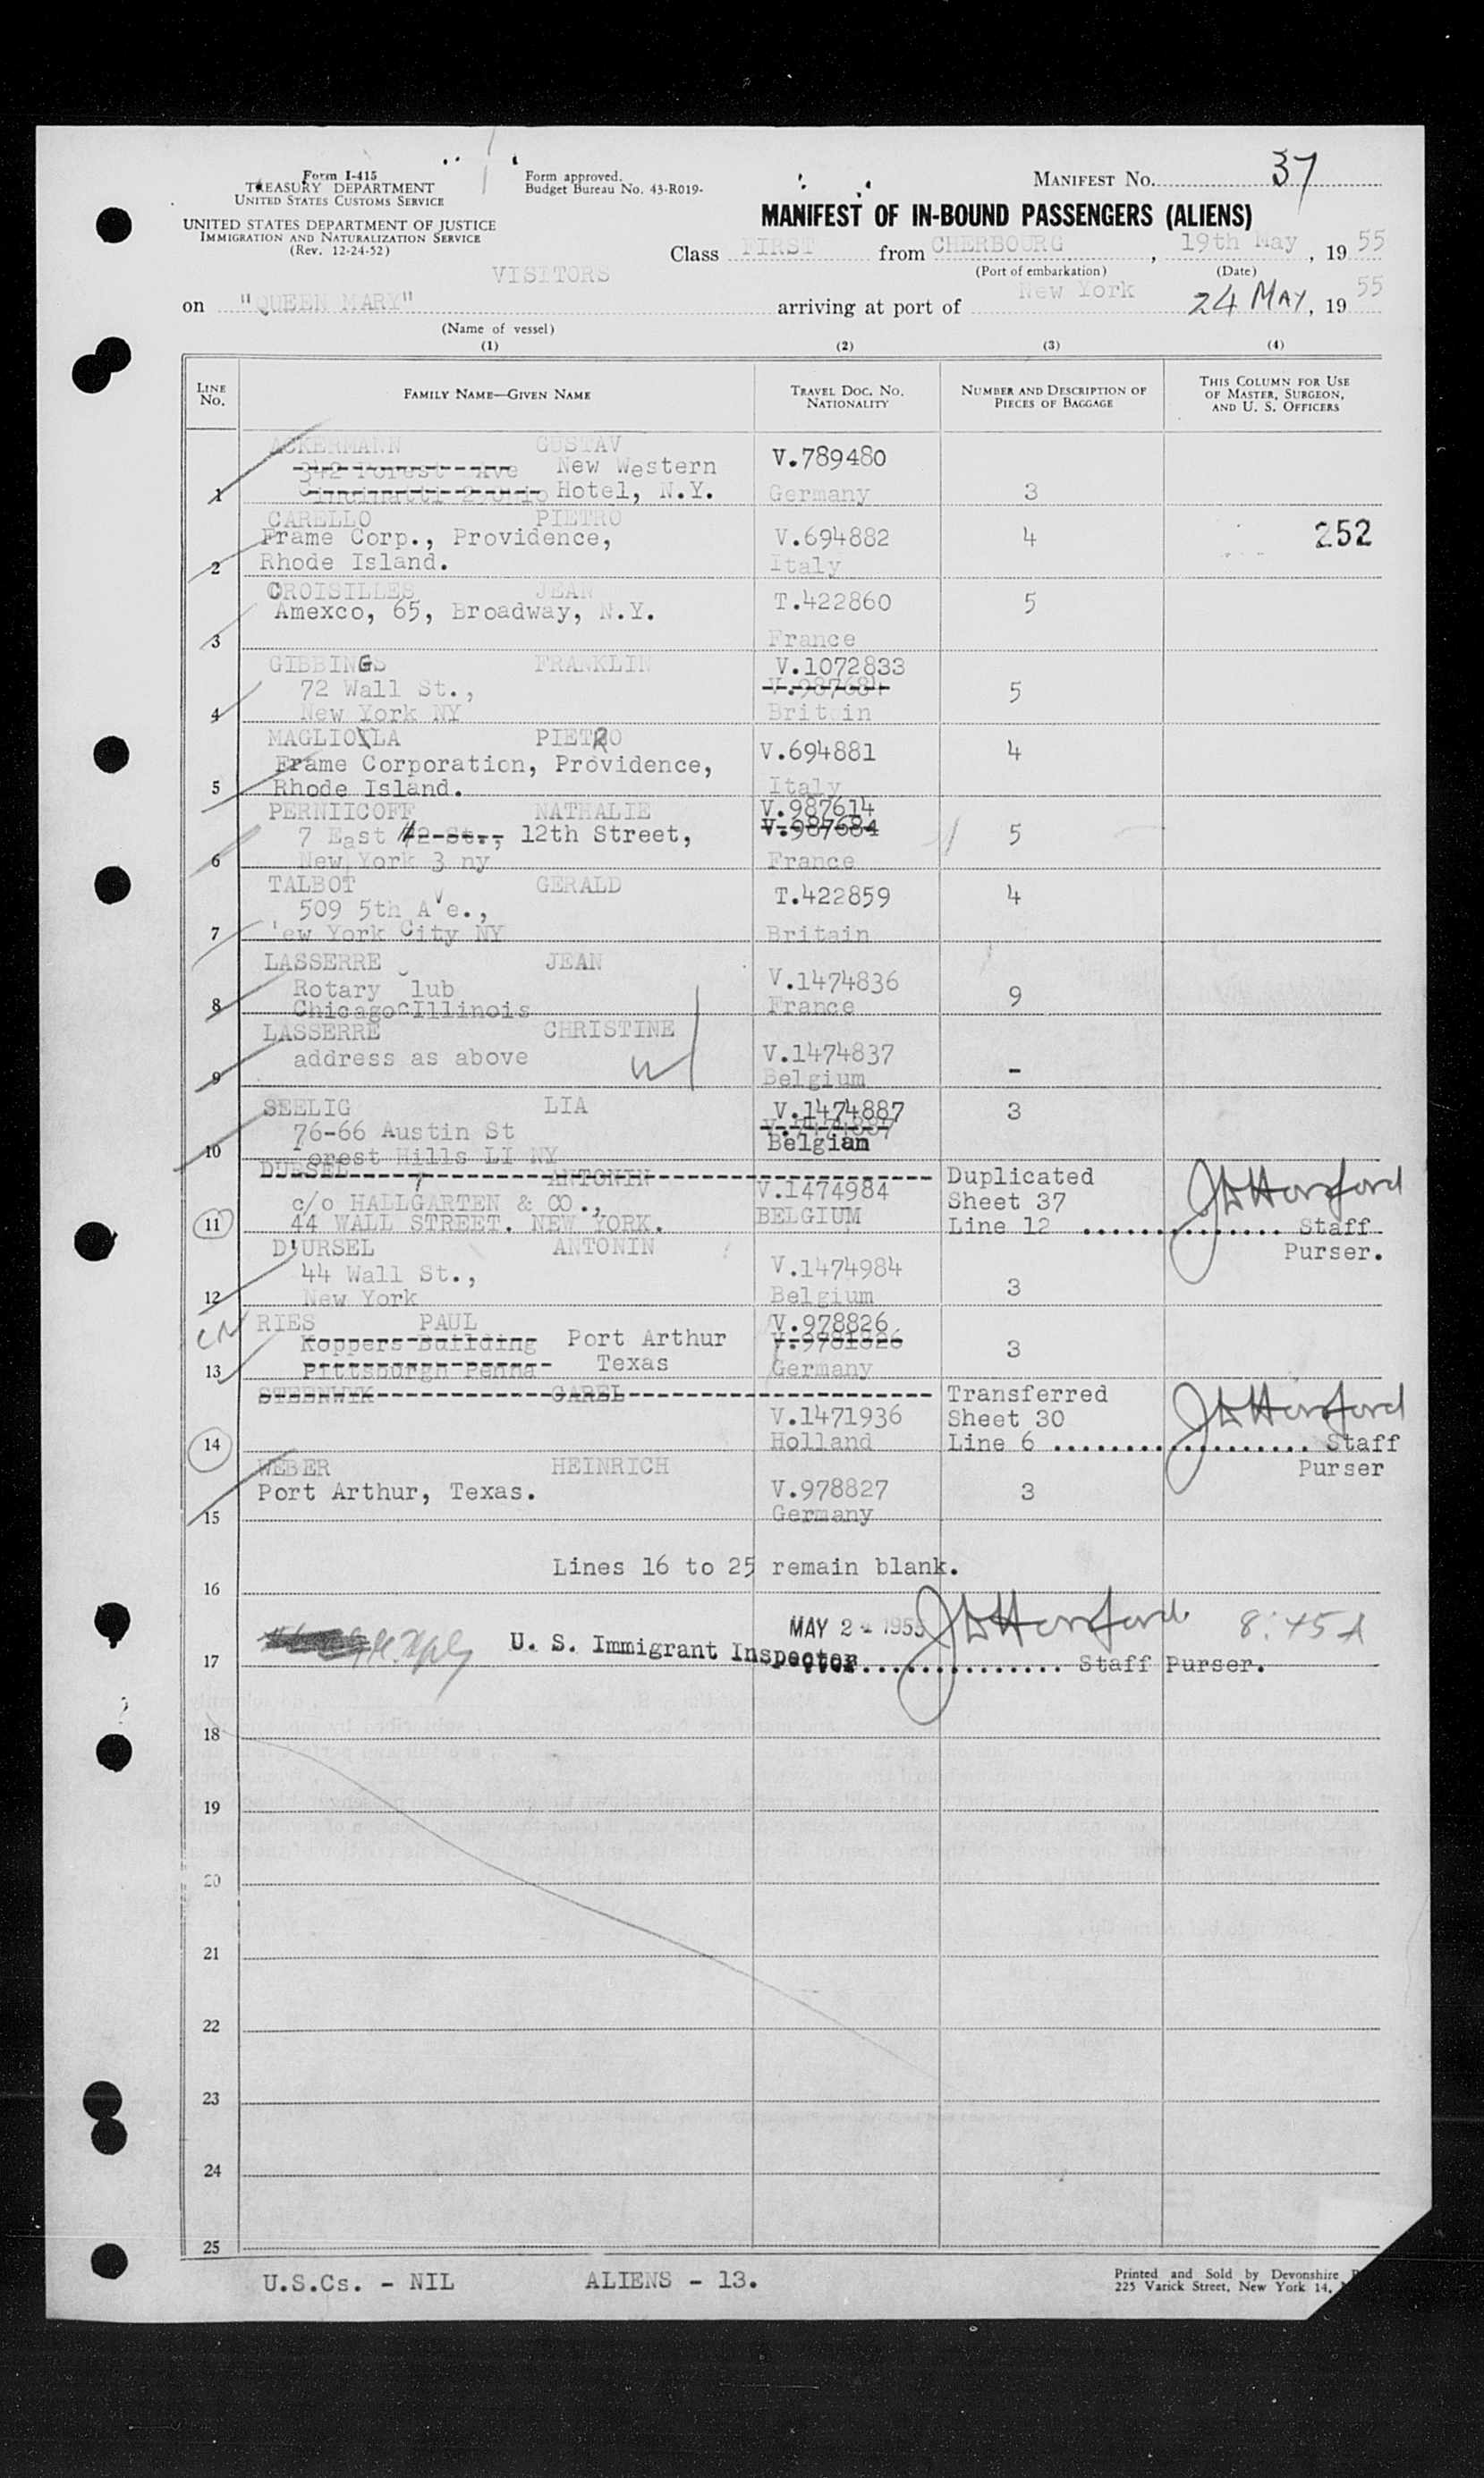 Form I-415
TREASURY DEPARTMENT
UNITED STATES CUSTOMS SERVICE
UNITED STATES DEPARTMENT OF JUSTICE
IMMIGRATION AND NATURALIZATION SERVICE
(Rev. 12-24-52)
Form approved.
Budget Bureau No. 43-R019-
MANIFEST No. 37
MANIFEST OF IN-BOUND PASSENGERS (ALIENS)
Class FIRST from CHERBOURG, 19th May, 19 55
(Port of embarkation) (Date)
VISITORS
on "QUEEN MARY" arriving at port of New York 24 MAY, 19 55
(Name of vessel)
(1) (2) (3) (4)
LINE No. FAMILY NAME—GIVEN NAME TRAVEL DOC. No. NATIONALITY NUMBER AND DESCRIPTION OF PIECES OF BAGGAGE THIS COLUMN FOR USE OF MASTER, SURGEON, AND U. S. OFFICERS
ACKERMANN GUSTAV V.789480
342 Forest Ave New Western
1 Cincinatti 2 Ohio Hotel, N.Y. Germany 3
CARELLO PIETRO
Frame Corp., Providence, V.694882 4 252
2 Rhode Island. Italy
CROISILLES JEAN
Amexco, 65, Broadway, N.Y. T.422860 5
3 France
GIBBINGS FRANKLIN V.1072833
72 Wall St., V.987684 5
4 New York NY Britain
MAGLIOLA PIETRO V.694881 4
Frame Corporation, Providence,
5 Rhode Island. Italy
PERNIICOFF NATHALIE V.987614
7 East 42 St., 12th Street, V.987684 5
6 New York 3 ny France
TALBOT GERALD
509 5th Ave., T.422859 4
7 'ew York City NY Britain
LASSERRE JEAN
Rotary lub V.1474836 9
8 Chicago c Illinois France
LASSERRE CHRISTINE
address as above V.1474837 -
9 Belgium
SEELIG LIA V.1474887 3
76-66 Austin St
10 Forest Hills LI NY Belgian
DURSEL ANTONIN Duplicated
c/o HALLGARTEN & CO., V.1474984 Sheet 37
11 44 WALL STREET. NEW YORK. BELGIUM Line 12 .............. Staff
Purser.
D'URSEL ANTONIN
44 Wall St., V.1474984 3
12 New York Belgium
RIES PAUL V.978826
Koppers Building Port Arthur V.9781826 3
13 Pittsburgh Penna Texas Germany
STEENWYK CAREL Transferred
V.1471936 Sheet 30
14 Holland Line 6 .................. Staff
Purser
WEBER HEINRICH
Port Arthur, Texas. V.978827 3
15 Germany
Lines 16 to 25 remain blank.
16
MAY 24 1955 8:45A
17 U. S. Immigrant Inspector .............. Staff Purser.
18
19
20
21
22
23
24
25
U.S.Cs. - NIL ALIENS - 13.
Printed and Sold by Devonshire
225 Varick Street, New York 14,